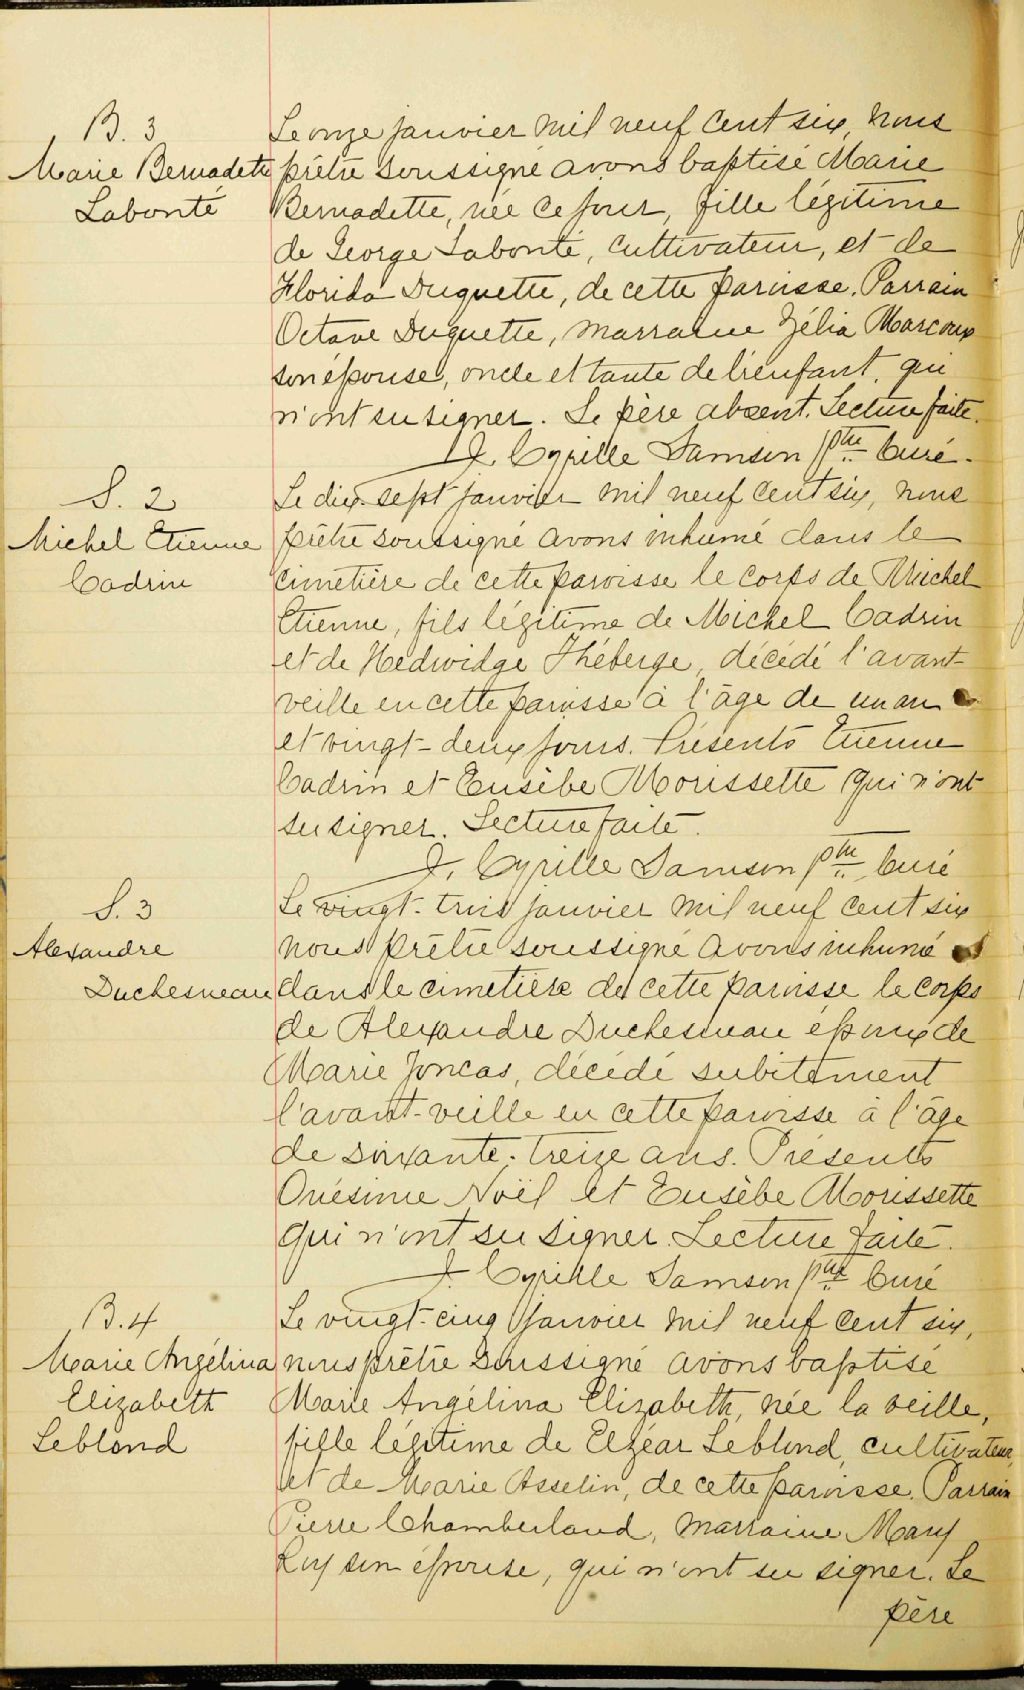 B. 3
Marie Bernadette
Labonté
Le onze janvier mil neuf cent six, nous
prêtre soussigné avons baptisé Marie
Bernadette, née ce jour, fille légitime
de George Labonté, cultivateur, et de
Florida Duquette, de cette paroisse. Parrain
Octave Duquette, marraine Zélia Marcoux
son épouse, oncle et tante de l'enfant, qui
n'ont su signer. Le père absent. Lecture faite.
J. Cyrille Samson Ptre Curé.
S. 2
Michel Etienne
Cadrin
Le dix-sept janvier mil neuf cent six, nous
prêtre soussigné avons inhumé dans le
cimetière de cette paroisse le corps de Michel
Etienne, fils légitime de Michel Cadrin
et de Hedwidge Théberge, décédé l'avant-
veille en cette paroisse à l'âge de un an
et vingt-deux jours. Présents Etienne
Cadrin et Eusèbe Morissette qui n'ont
su signer. Lecture faite.
J. Cyrille Samson Ptre Curé
S. 3
Alexandre
Duchesneau
Le vingt-trois janvier mil neuf cent six
nous prêtre soussigné avons inhumé
dans le cimetière de cette paroisse le corps
de Alexandre Duchesneau époux de
Marie Joncas, décédé subitement
l'avant-veille en cette paroisse à l'âge
de soixante-treize ans. Présents
Onésime Noël et Eusèbe Morissette
qui n'ont su signer. Lecture faite.
J. Cyrille Samson Ptre Curé
B. 4
Marie Angélina
Elizabeth
Leblond
Le vingt-cinq janvier mil neuf cent six,
nous prêtre soussigné avons baptisé
Marie Angélina Elizabeth, née la veille,
fille légitime de Elzéar Leblond, cultivateur,
et de Marie Asselin, de cette paroisse. Parrain
Pierre Chamberland, marraine Mary
Roy son épouse, qui n'ont su signer. Le
père